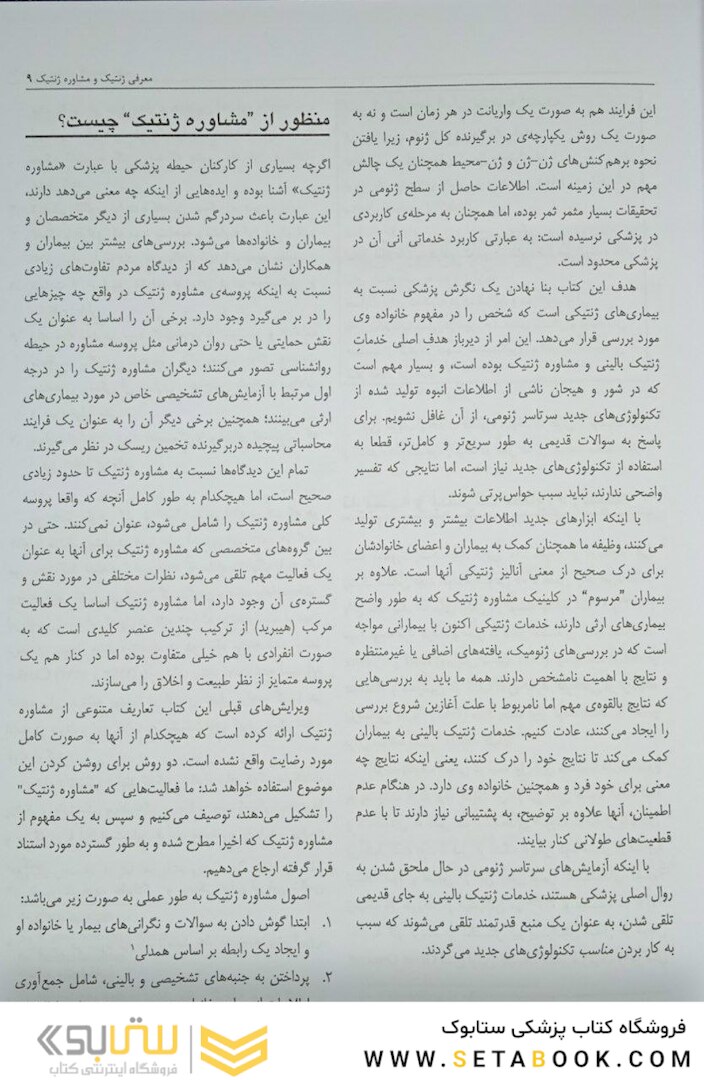 معرفی ژنتیک و مشاوره ژنتیک ۹
این فرایند هم به صورت یک واریانت در هر زمان است و نه به
صورت یک روش یکپارچه‌ی در برگیرنده کل ژنوم، زیرا یافتن
نحوه برهم‌کنش‌های ژن-ژن و ژن-محیط همچنان یک چالش
مهم در این زمینه است. اطلاعات حاصل از سطح ژنومی در
تحقیقات بسیار مثمر ثمر بوده، اما همچنان به مرحله‌ی کاربردی
در پزشکی نرسیده است: به عبارتی کاربرد خدماتی آنی آن در
پزشکی محدود است.
هدف این کتاب بنا نهادن یک نگرش پزشکی نسبت به
بیماری‌های ژنتیکی است که شخص را در مفهوم خانواده وی
مورد بررسی قرار می‌دهد. این امر از دیرباز هدفِ اصلی خدماتِ
ژنتیک بالینی و مشاوره ژنتیک بوده است، و بسیار مهم است
که در شور و هیجان ناشی از اطلاعات انبوه تولید شده از
تکنولوژی‌های جدید سرتاسر ژنومی، از آن غافل نشویم. برای
پاسخ به سوالات قدیمی به طور سریع‌تر و کامل‌تر، قطعا به
استفاده از تکنولوژی‌های جدید نیاز است، اما نتایجی که تفسیر
واضحی ندارند، نباید سبب حواس‌پرتی شوند.
با اینکه ابزارهای جدید اطلاعات بیشتر و بیشتری تولید
می‌کنند، وظیفه ما همچنان کمک به بیماران و اعضای خانوادشان
برای درک صحیح از معنی آنالیز ژنتیکی آنها است. علاوه بر
بیماران "مرسوم" در کلینیک مشاوره ژنتیک که به طور واضح
بیماری‌های ارثی دارند، خدمات ژنتیکی اکنون با بیمارانی مواجه
است که در بررسی‌های ژنومیک، یافته‌های اضافی یا غیرمنتظره
و نتایج با اهمیت نامشخص دارند. همه ما باید به بررسی‌هایی
که نتایج بالقوه‌ی مهم اما نامربوط با علت آغازین شروع بررسی
را ایجاد می‌کنند، عادت کنیم. خدمات ژنتیک بالینی به بیماران
کمک می‌کند تا نتایج خود را درک کنند، یعنی اینکه نتایج چه
معنی برای خود فرد و همچنین خانواده وی دارد. در هنگام عدم
اطمینان، آنها علاوه بر توضیح، به پشتیبانی نیاز دارند تا با عدم
قطعیت‌های طولانی کنار بیایند.
با اینکه آزمایش‌های سرتاسر ژنومی در حال ملحق شدن به
روال اصلی پزشکی هستند، خدمات ژنتیک بالینی به جای قدیمی
تلقی شدن، به عنوان یک منبع قدرتمند تلقی می‌شوند که سبب
به کار بردن مناسب تکنولوژی‌های جدید می‌گردند.
منظور از "مشاوره ژنتیک" چیست؟
اگرچه بسیاری از کارکنان حیطه پزشکی با عبارت «مشاوره
ژنتیک» آشنا بوده و ایده‌هایی از اینکه چه معنی می‌دهد دارند،
این عبارت باعث سردرگم شدن بسیاری از دیگر متخصصان و
بیماران و خانواده‌ها می‌شود. بررسی‌های بیشتر بین بیماران و
همکاران نشان می‌دهد که از دیدگاه مردم تفاوت‌های زیادی
نسبت به اینکه پروسه‌ی مشاوره ژنتیک در واقع چه چیزهایی
را در بر می‌گیرد وجود دارد. برخی آن را اساسا به عنوان یک
نقش حمایتی یا حتی روان درمانی مثل پروسه مشاوره در حیطه
روانشناسی تصور می‌کنند؛ دیگران مشاوره ژنتیک را در درجه
اول مرتبط با آزمایش‌های تشخیصی خاص در مورد بیماری‌های
ارثی می‌بینند؛ همچنین برخی دیگر آن را به عنوان یک فرایند
محاسباتی پیچیده دربرگیرنده تخمین ریسک در نظر می‌گیرند.
تمام این دیدگاه‌ها نسبت به مشاوره ژنتیک تا حدود زیادی
صحیح است، اما هیچکدام به طور کامل آنچه که واقعا پروسه
کلی مشاوره ژنتیک را شامل می‌شود، عنوان نمی‌کنند. حتی در
بین گروه‌های متخصصی که مشاوره ژنتیک برای آنها به عنوان
یک فعالیت مهم تلقی می‌شود، نظرات مختلفی در مورد نقش و
گستره‌ی آن وجود دارد، اما مشاوره ژنتیک اساسا یک فعالیت
مرکب (هیبرید) از ترکیب چندین عنصر کلیدی است که به
صورت انفرادی با هم خیلی متفاوت بوده اما در کنار هم یک
پروسه متمایز از نظر طبیعت و اخلاق را می‌سازند.
ویرایش‌های قبلی این کتاب تعاریف متنوعی از مشاوره
ژنتیک ارائه کرده است که هیچکدام از آنها به صورت کامل
مورد رضایت واقع نشده است. دو روش برای روشن کردن این
موضوع استفاده خواهد شد: ما فعالیت‌هایی که "مشاوره ژنتیک"
را تشکیل می‌دهند، توصیف می‌کنیم و سپس به یک مفهوم از
مشاوره ژنتیک که اخیرا مطرح شده و به طور گسترده مورد استناد
قرار گرفته ارجاع می‌دهیم.
اصول مشاوره ژنتیک به طور عملی به صورت زیر می‌باشد:
۱. ابتدا گوش دادن به سوالات و نگرانی‌های بیمار یا خانواده او
و ایجاد یک رابطه بر اساس همدلی۱
۲. پرداختن به جنبه‌های تشخیصی و بالینی، شامل جمع‌آوری
ستابوک
فروشگاه اینترنتی کتاب
فروشگاه کتاب پزشکی ستابوک
WWW.SETABOOK.COM